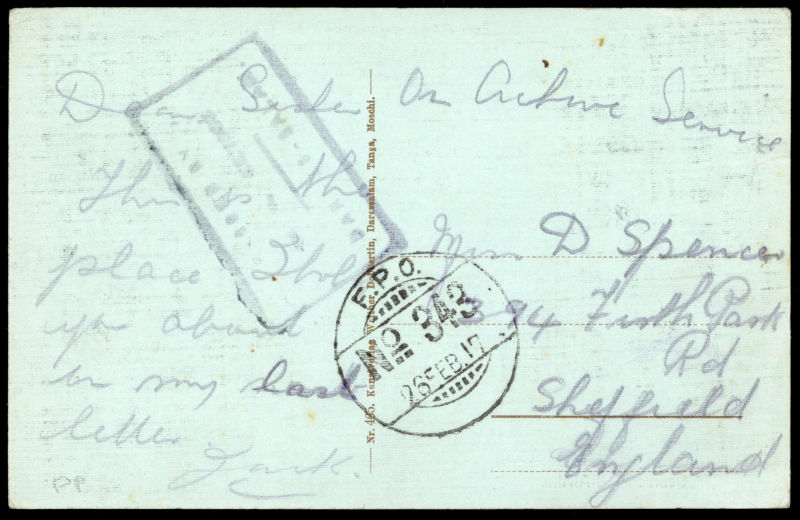 Dear Sister
This is the
place I told
you about
in my last
letter
Jack.
On Active Service
Miss D Spencer
394 Firth Park
Rd
Sheffield
England
F.P.O.
No 343
26 FEB. 17
Daressalam, Tanga, Moschi.
PP